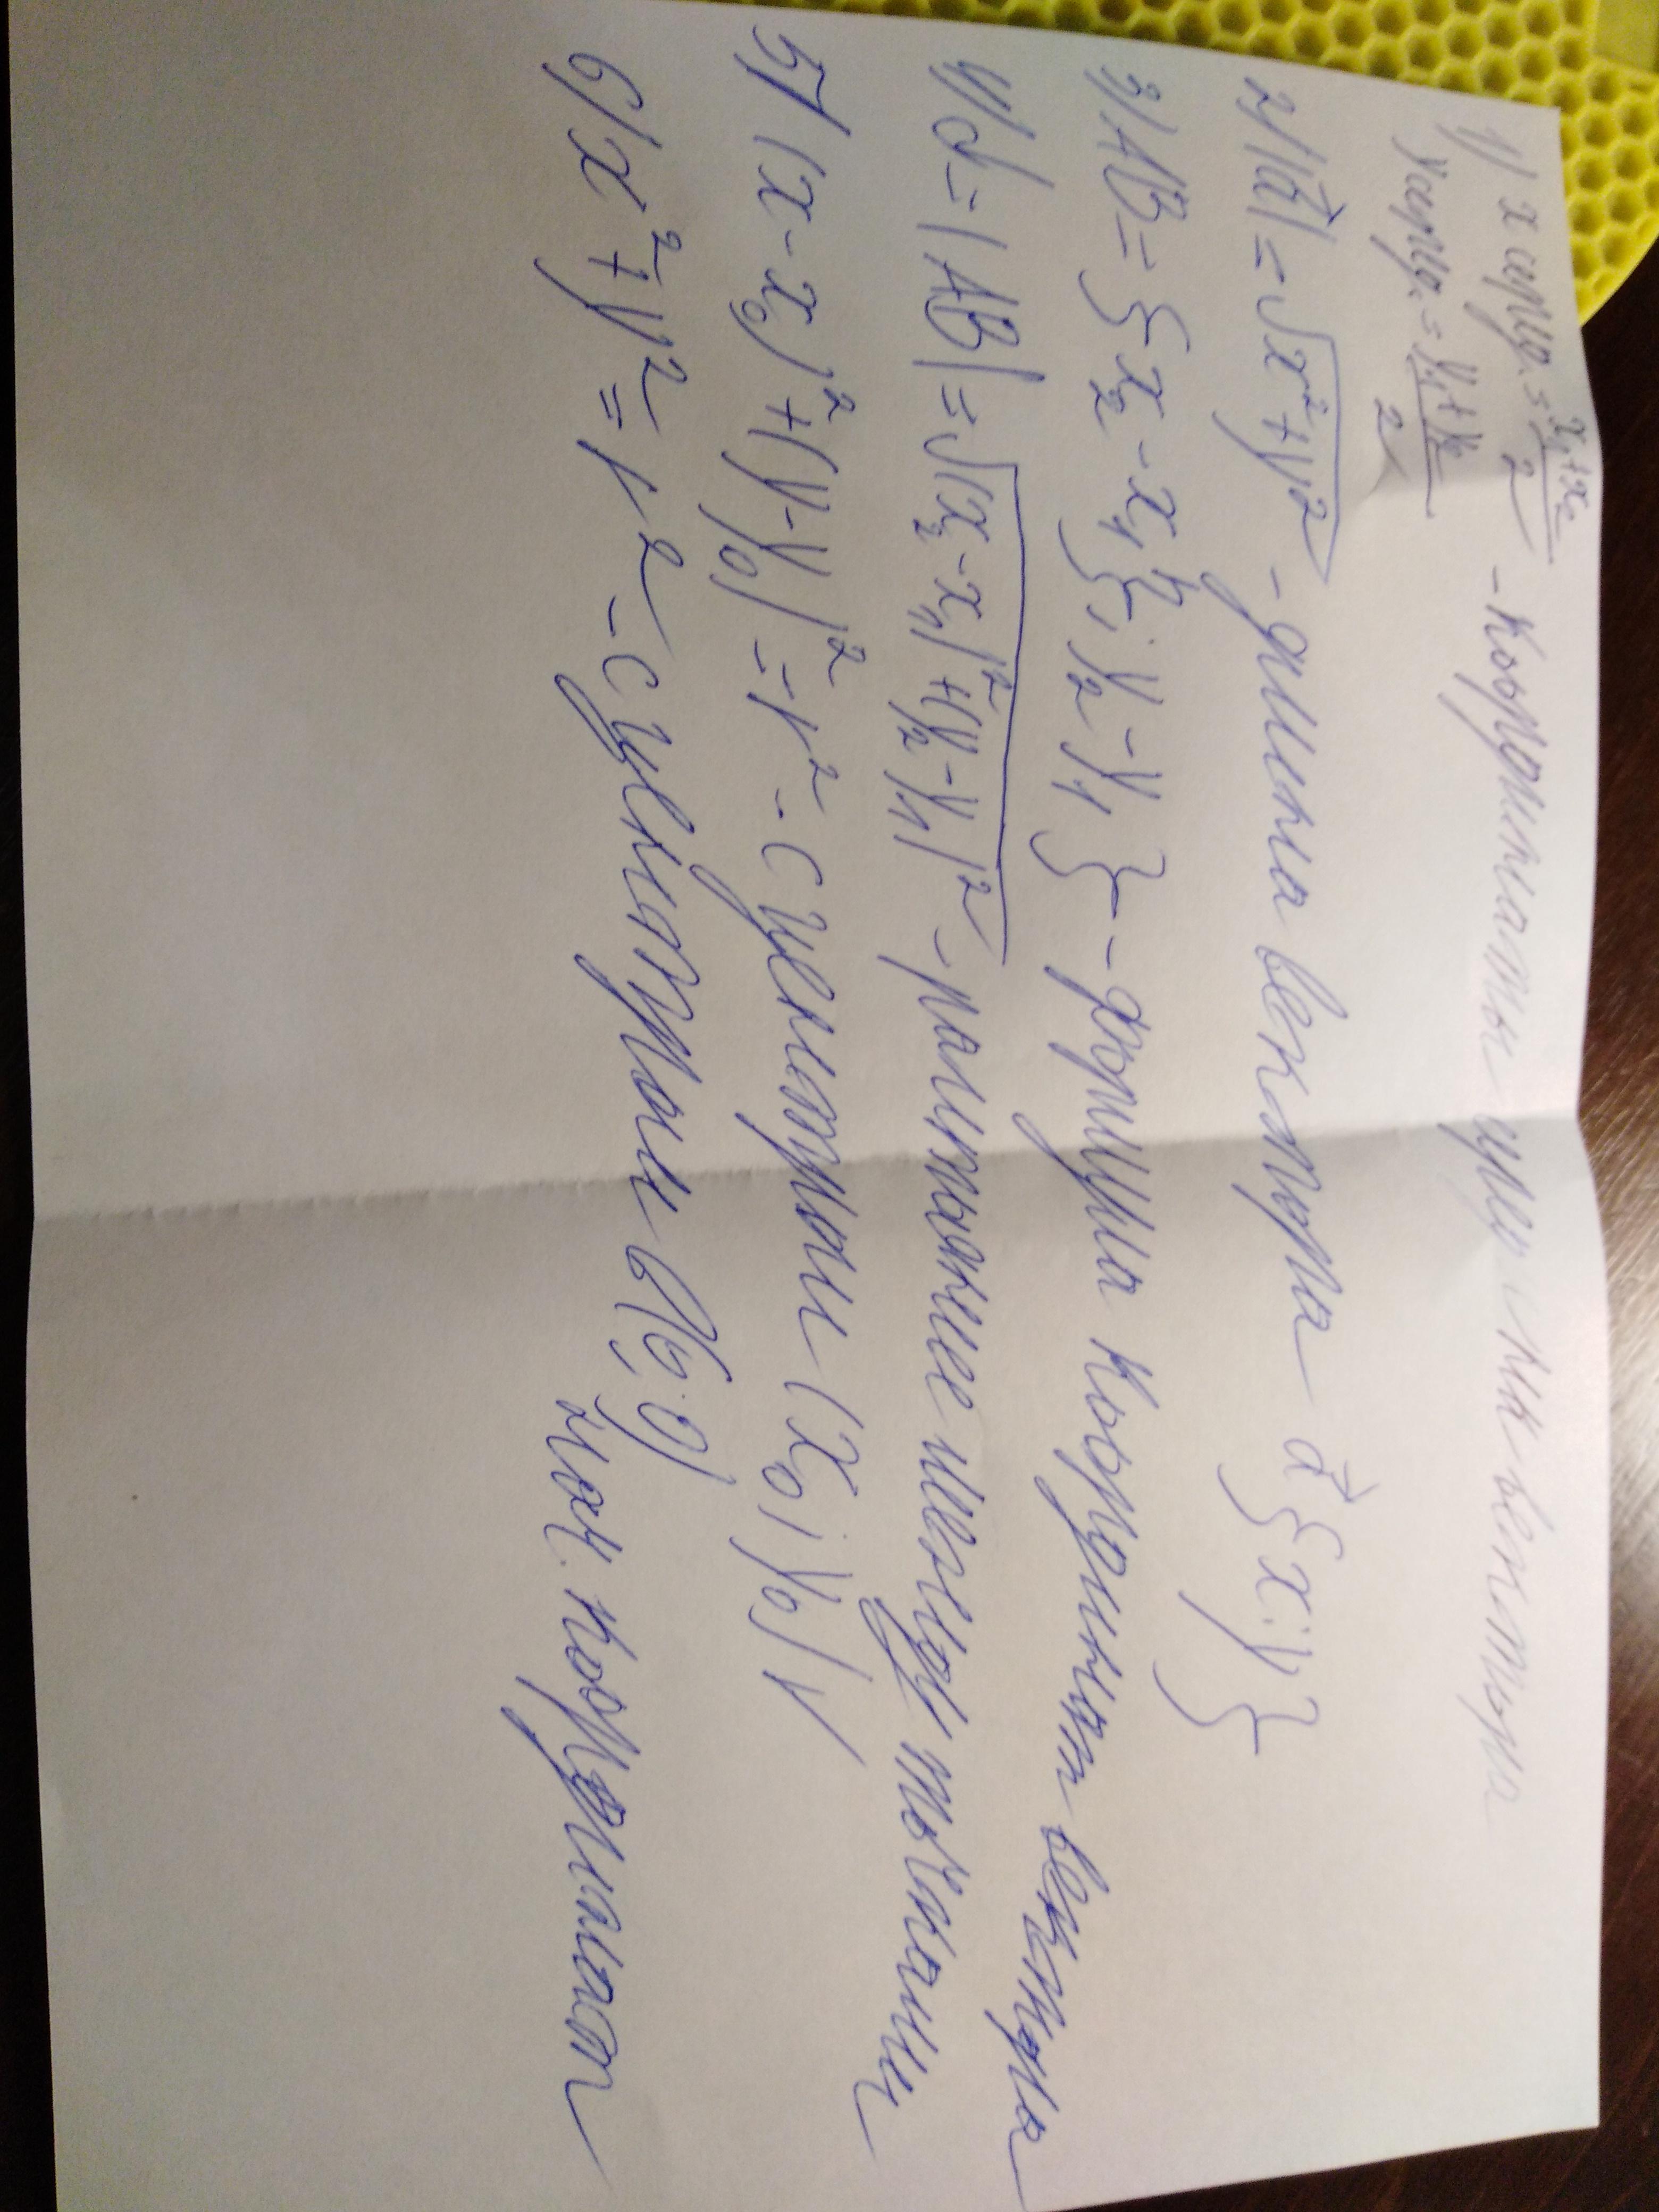 1) x серед. = x₁+x₂/2 - Координаты середины вектора
y серед. = y₁+y₂/2
2) |a⃗| = √x²+y² - длина вектора a⃗{x;y}
3) AB = {x₂-x₁; y₂-y₁} - формула координат вектора
4) d = |AB| = √(x₂-x₁)²+(y₂-y₁)² - расстояние между точками
5) (x-x₀)²+(y-y₀)² = r² - с центром (x₀; y₀)
6) x²+y² = r² - с центром в (0;0)
нач. координат